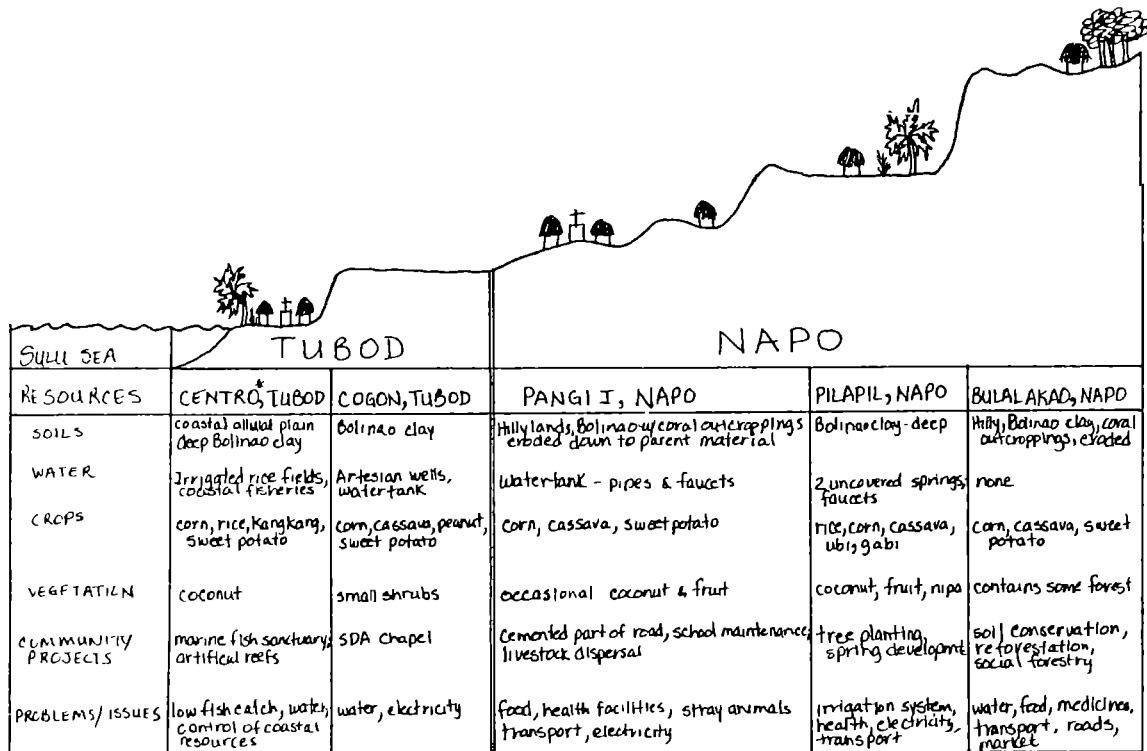 SULU SEA
TUBOD
NAPO
RESOURCES
CENTRO*, TUBOD
COGON, TUBOD
PANGI I, NAPO
PILAPIL, NAPO
BULALAKAO, NAPO
SOILS
coastal alluvial plain
deep Bolinao clay
Bolinao clay
Hilly lands, Bolinao w/coral outcroppings
eroded down to parent material
Bolinao clay-deep
Hilly, Bolinao clay, coral
outcroppings, eroded
WATER
Irrigated rice fields,
coastal fisheries
Artesian wells,
watertank
Watertank - pipes & faucets
2 uncovered springs,
faucets
none
CROPS
corn, rice, Kangkang,
sweet potato
corn, cassava, peanut,
sweet potato
corn, cassava, sweet potato
rice, corn, cassava,
ubi, gabi
corn, cassava, sweet
potato
VEGETATION
coconut
small shrubs
occasional coconut & fruit
coconut, fruit, nipa
contains some forest
COMMUNITY
PROJECTS
marine fish sanctuary,
artificial reefs
SDA chapel
Cemented part of road, school maintenance,
livestock dispersal
tree planting,
spring developmnt
soil conservation,
reforestation,
social forestry
PROBLEMS/ISSUES
low fish catch, water,
control of coastal
resources
water, electricity
food, health facilities, stray animals
transport, electricity
irrigation system,
health, electricity,
transport
water, food, medicines,
transport, roads,
market